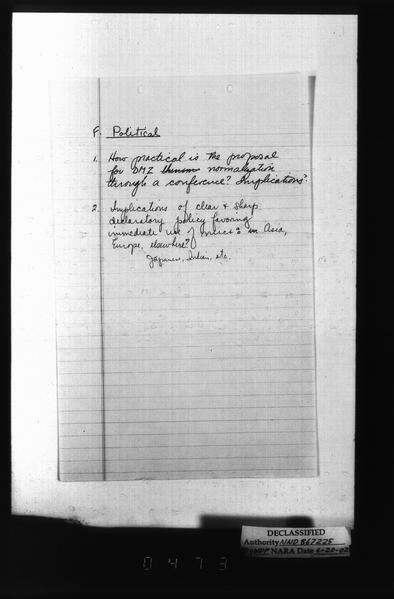 F. Political
1. How practical is the proposal
for DMZ normalization
through a conference? Implications?
2. Implications of clear & sharp
declaratory policy favoring
immediate use of in Asia,
Europe, elsewhere?
Japanese, Indian, etc.
DECLASSIFIED
Authority NND 867225
NARA Date 6-20-02
0473